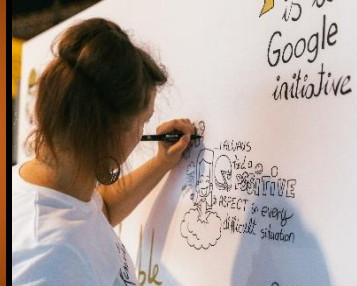 is a
Google
initiative
I ALWAYS
find a
POSITIVE
ASPECT in every
difficult situation
ble